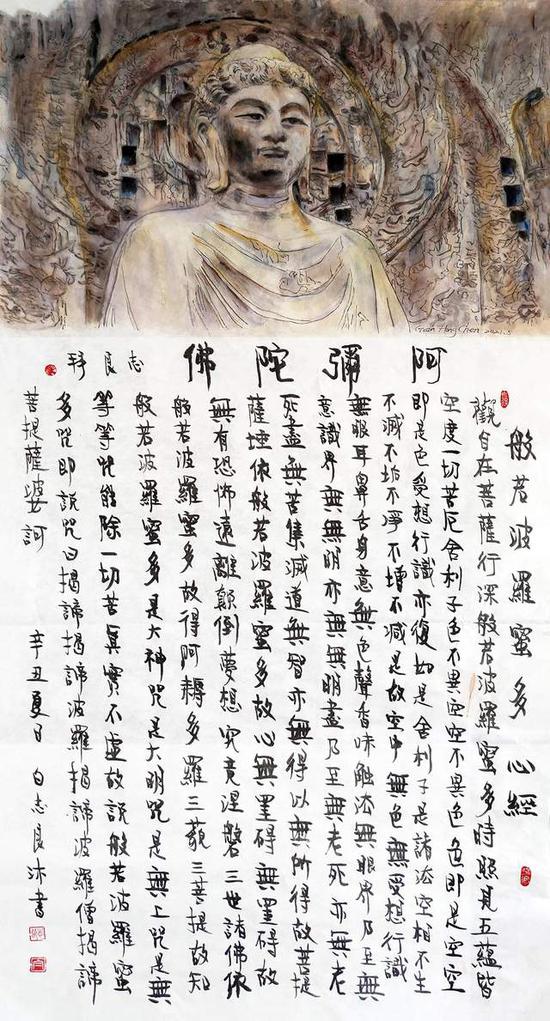 Guan Hong Chen 2021.5
阿彌陀佛
志良
般若波羅蜜多心經
觀自在菩薩行深般若波羅蜜多時照見五蘊皆
空度一切苦厄舍利子色不異空空不異色色即是空空
即是色受想行識亦復如是舍利子是諸法空相不生
不滅不垢不淨不增不減是故空中無色無受想行識
無眼耳鼻舌身意無色聲香味觸法無眼界乃至無
意識界無無明亦無無明盡乃至無老死亦無老
死盡無苦集滅道無智亦無得以無所得故菩提
薩埵依般若波羅蜜多故心無罣礙無罣礙故
無有恐怖遠離顛倒夢想究竟涅槃三世諸佛依
般若波羅蜜多故得阿耨多羅三藐三菩提故知
般若波羅蜜多是大神咒是大明咒是無上咒是無
等等咒能除一切苦真實不虛故說般若波羅蜜
多咒即說咒曰揭諦揭諦波羅揭諦波羅僧揭諦
菩提薩婆訶 辛丑夏日 白志良沐書